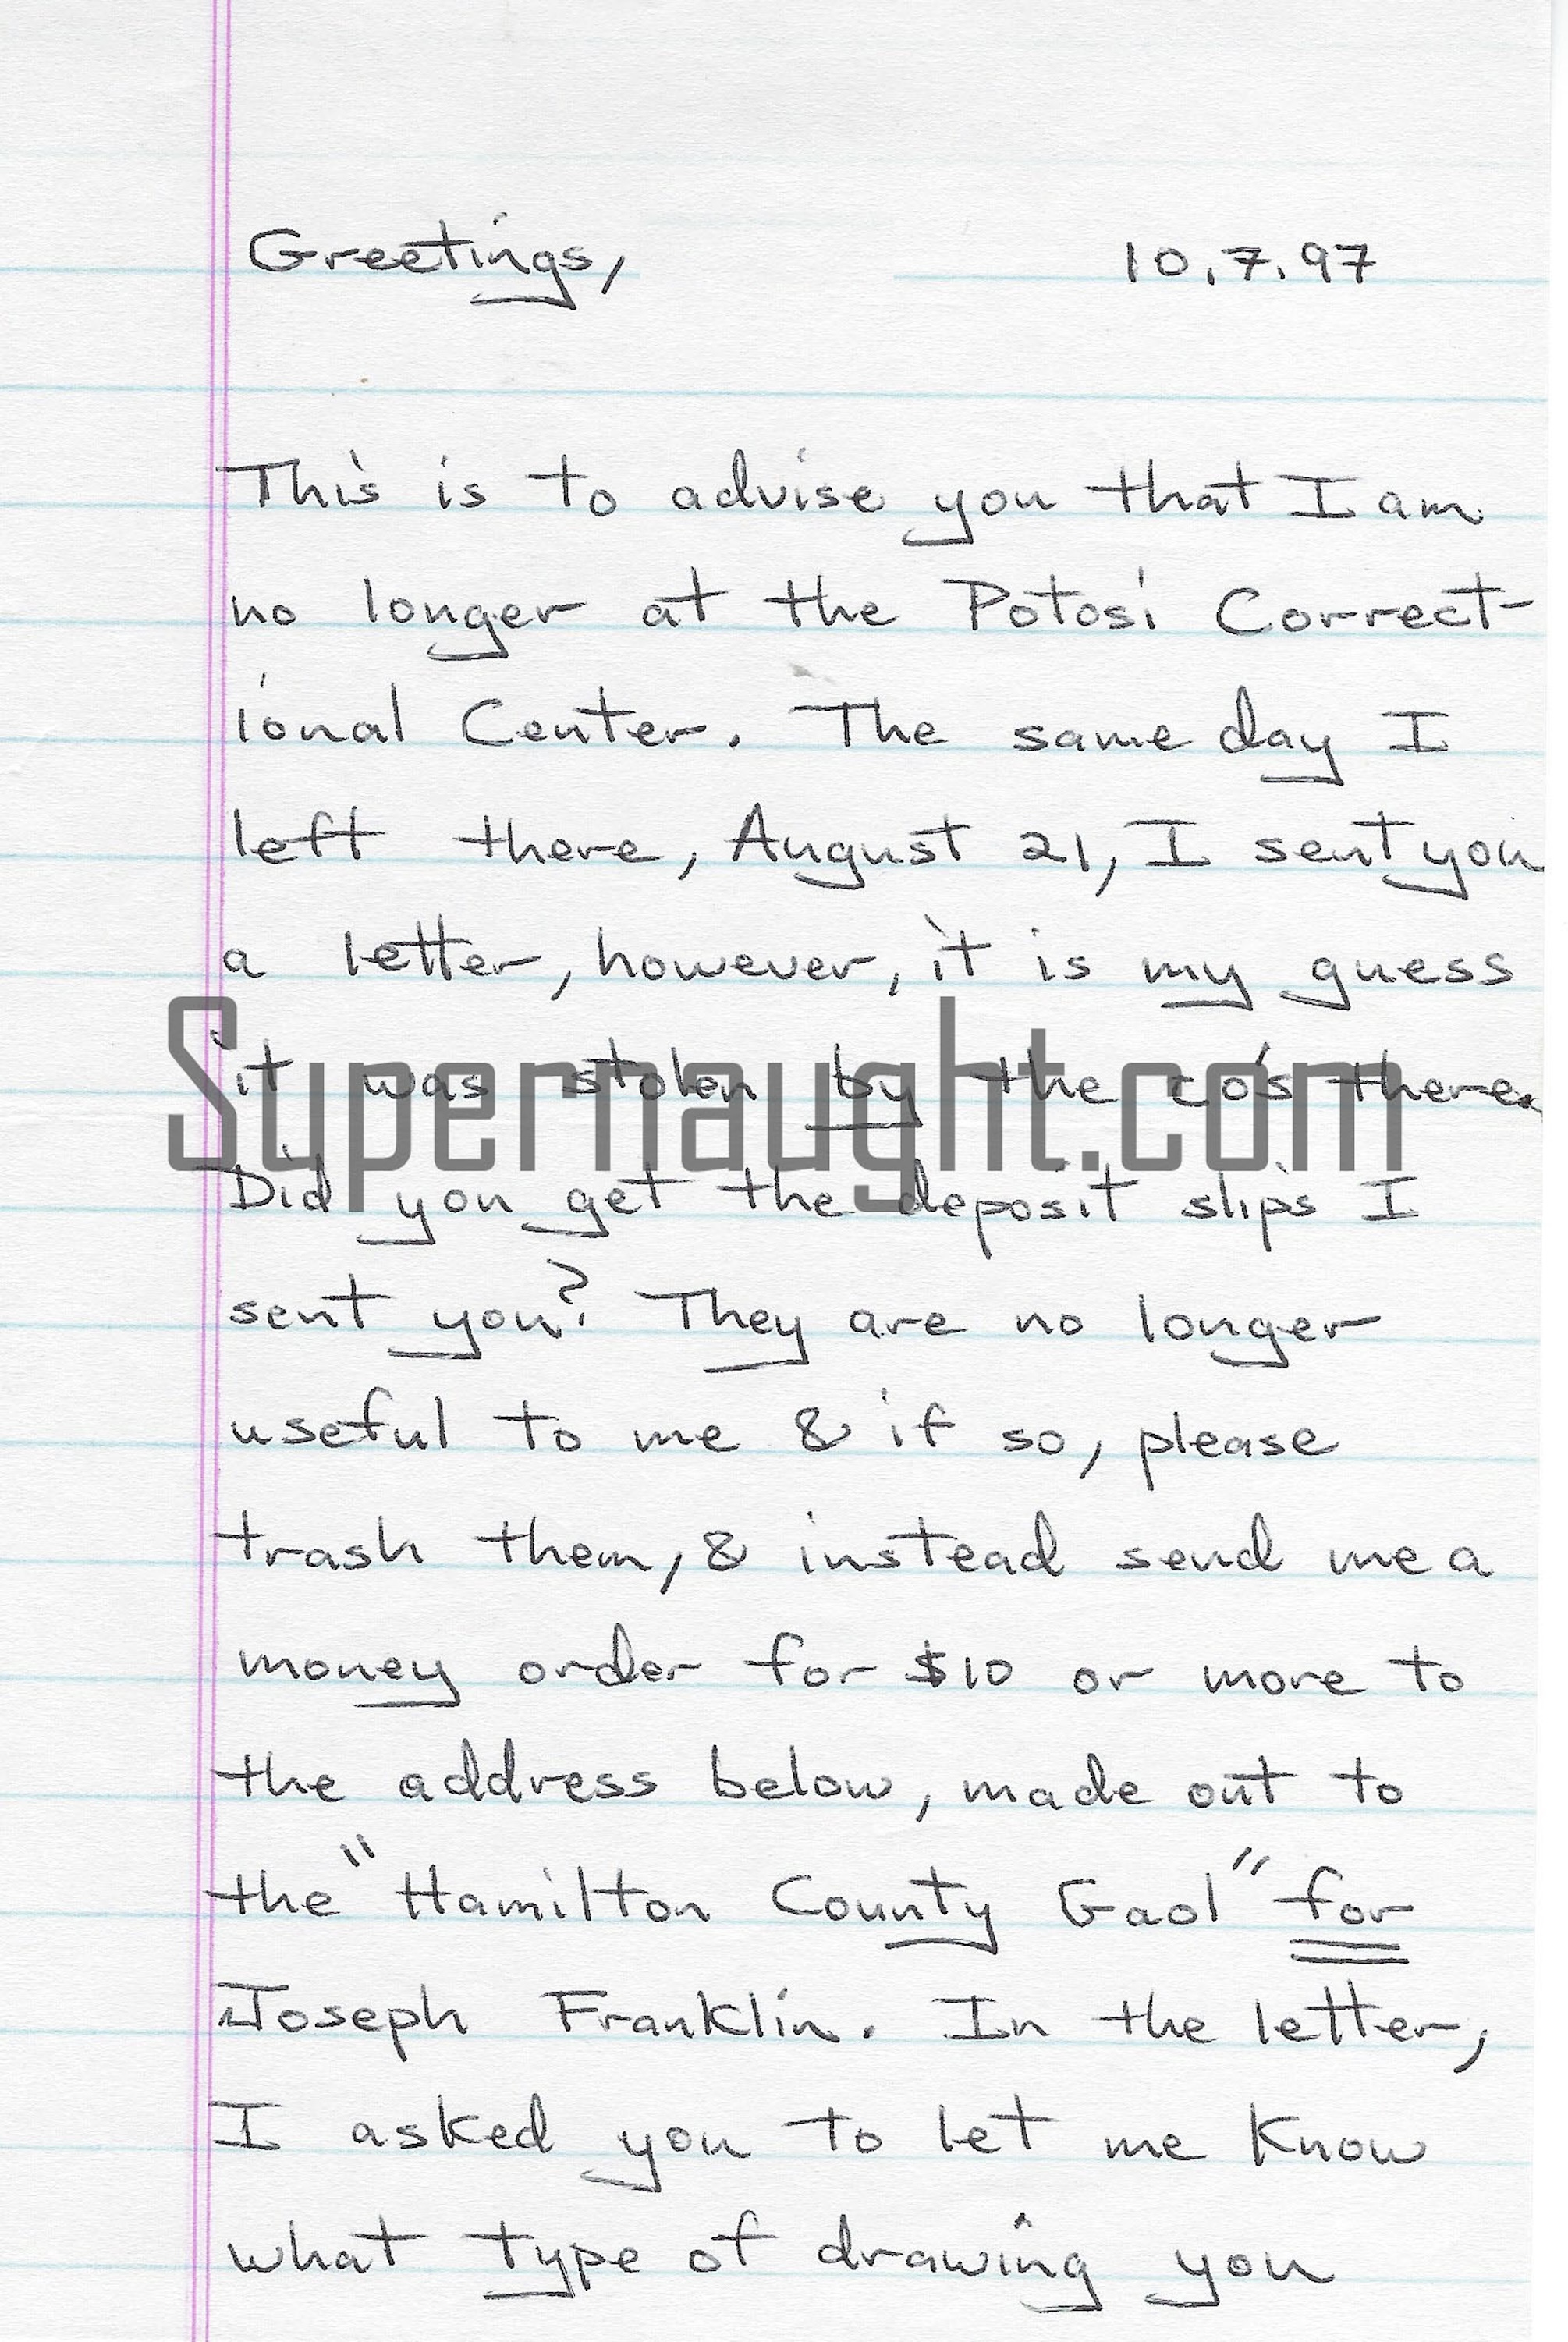 Greetings, 10.7.97
This is to advise you that I am
no longer at the Potosi Correct-
ional Center. The same day I
left there, August 21, I sent you
a letter, however, it is my guess
it was stolen by the co's there.
Supernaught.com
Did you get the deposit slips I
sent you? They are no longer
useful to me & if so, please
trash them, & instead send me a
money order for $10 or more to
the address below, made out to
the "Hamilton County Gaol" for
Joseph Franklin. In the letter,
I asked you to let me know
what type of drawing you